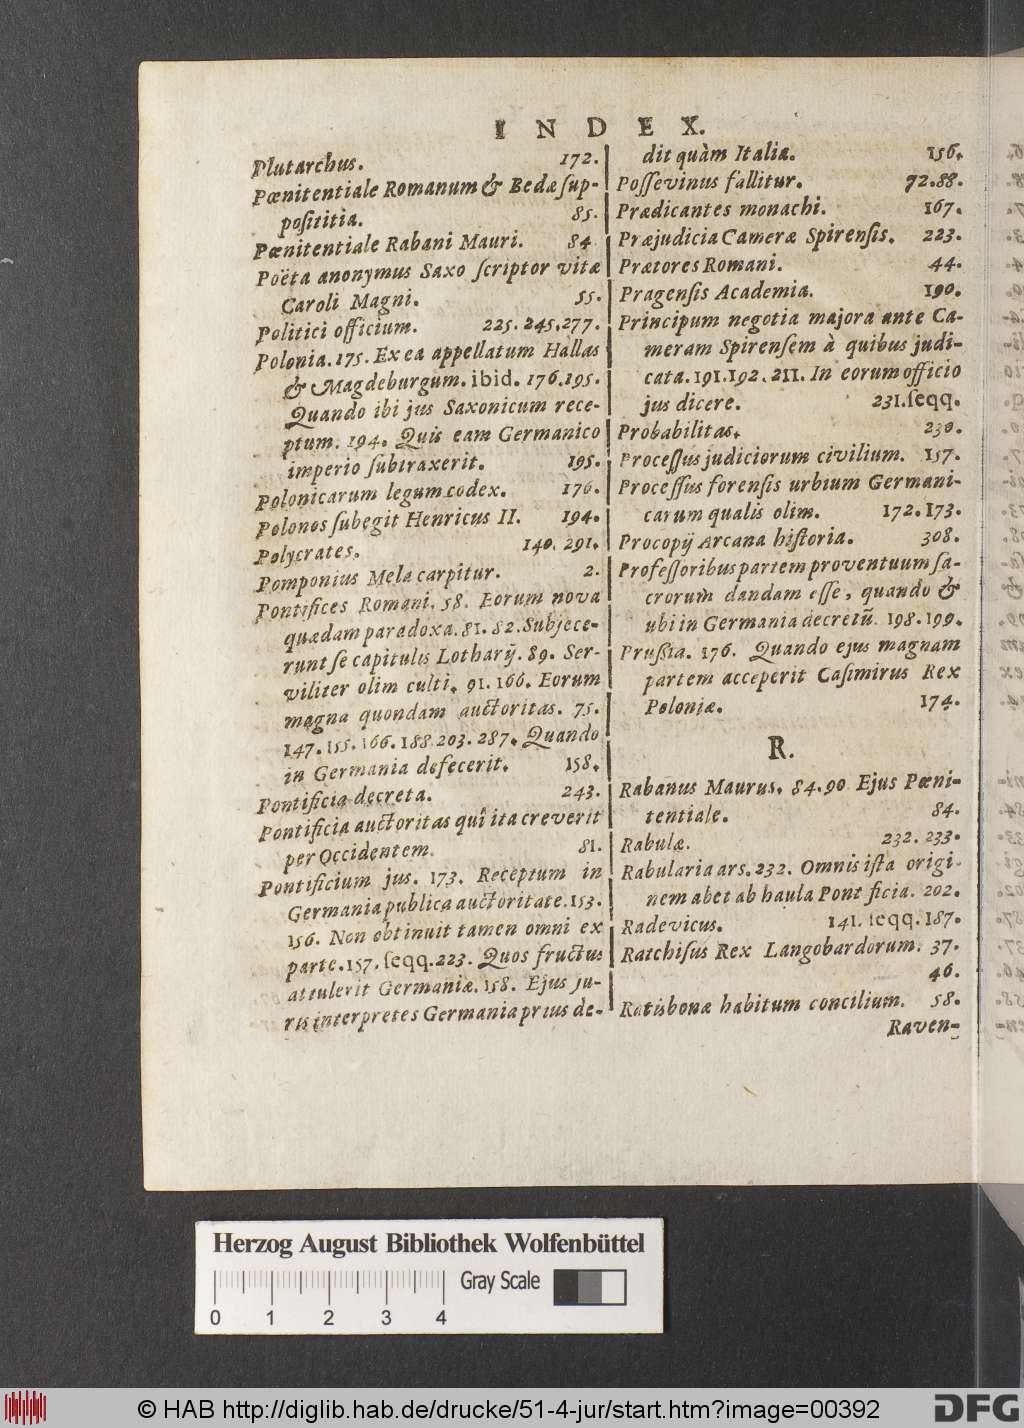 INDEX.
Plutarchus. 172.
Pœnitentiale Romanum & Bedæ sup-
posititia. 85.
Pœnitentiale Rabani Mauri. 84
Poëta anonymus Saxo scriptor vitæ
Caroli Magni. 55.
Politici officium. 225.245.277.
Polonia.175. Ex ea appellatum Hallas
& Magdeburgum. ibid. 176.195.
Quando ibi jus Saxonicum rece-
ptum. 194. Quis eam Germanico
imperio subtraxerit. 195.
Polonicarum legum codex. 176.
Polonos subegit Henricus II. 194.
Polycrates. 140. 291.
Pomponius Mela carpitur. 2.
Pontifices Romani. 58. Eorum nova
quædam paradoxa. 81. 82. Subjece-
runt se capitulis Lotharij. 89. Ser-
viliter olim culti. 91. 166. Eorum
magna quondam auctoritas. 75.
147. 155. 166. 188 203. 287. Quando
in Germania defecerit. 158.
Pontificia decreta. 243.
Pontificia auctoritas quî ita creverit
per Occidentem. 81.
Pontificium jus. 173. Receptum in
Germania publica auctoritate. 153.
156. Non obtinuit tamen omni ex
parte. 157. seqq. 223. Quos fructus
attulerit Germaniæ. 158. Ejus ju-
ris interpretes Germania prius de-
dit quàm Italia. 156.
Possevinus fallitur. 72.88.
Prædicantes monachi. 167.
Præjudicia Cameræ Spirensis. 223.
Prætores Romani. 44.
Pragensis Academia. 190.
Principum negotia majora ante Ca-
meram Spirensem à quibus judi-
cata. 191.192. 211. In eorum officio
jus dicere. 231.seqq.
Probabilitas. 230.
Processus judiciorum civilium. 157.
Processus forensis urbium Germani-
carum qualis olim. 172.173.
Procopij Arcana historia. 308.
Professoribus partem proventuum sa-
crorum dandam esse, quando &
ubi in Germania decretũ. 198.199.
Prußia. 176. Quando ejus magnam
partem acceperit Casimirus Rex
Poloniæ. 174.
R.
Rabanus Maurus. 84.90 Ejus Pœni-
tentiale. 84.
Rabulæ. 232. 233.
Rabularia ars. 232. Omnis ista origi-
nem abet ab haula Pont ficia. 202.
Radevicus. 141. seqq. 187.
Ratchisus Rex Langobardorum. 37.
46.
Ratisbonæ habitum concilium. 58.
Raven-
Herzog August Bibliothek Wolfenbüttel
Gray Scale
0 1 2 3 4
© HAB http://diglib.hab.de/drucke/51-4-jur/start.htm?image=00392
DFG